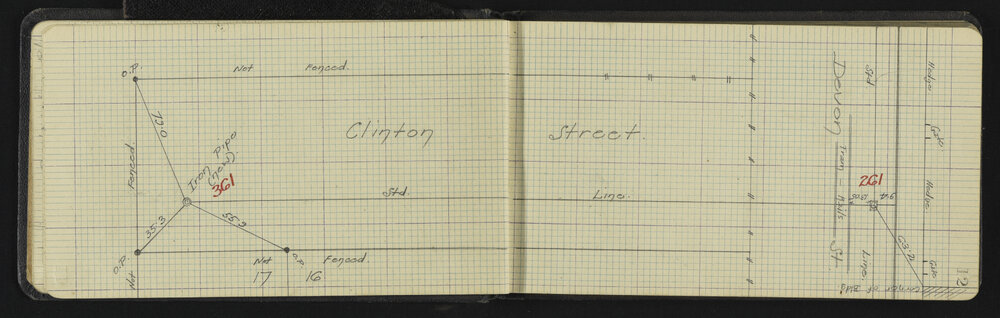 O.P.
Not Fenced.
72.0
Clinton Street.
Fenced
Iron Pipe
(new)
361
Std. Line.
35.3
55.2
O.P.
O.P.
Not Fenced.
Not
17 16
Devon St.
Tram - Rails
Std Line
261
Hedge
Gate
Hedge
Gate
Corner of Bldg.
12